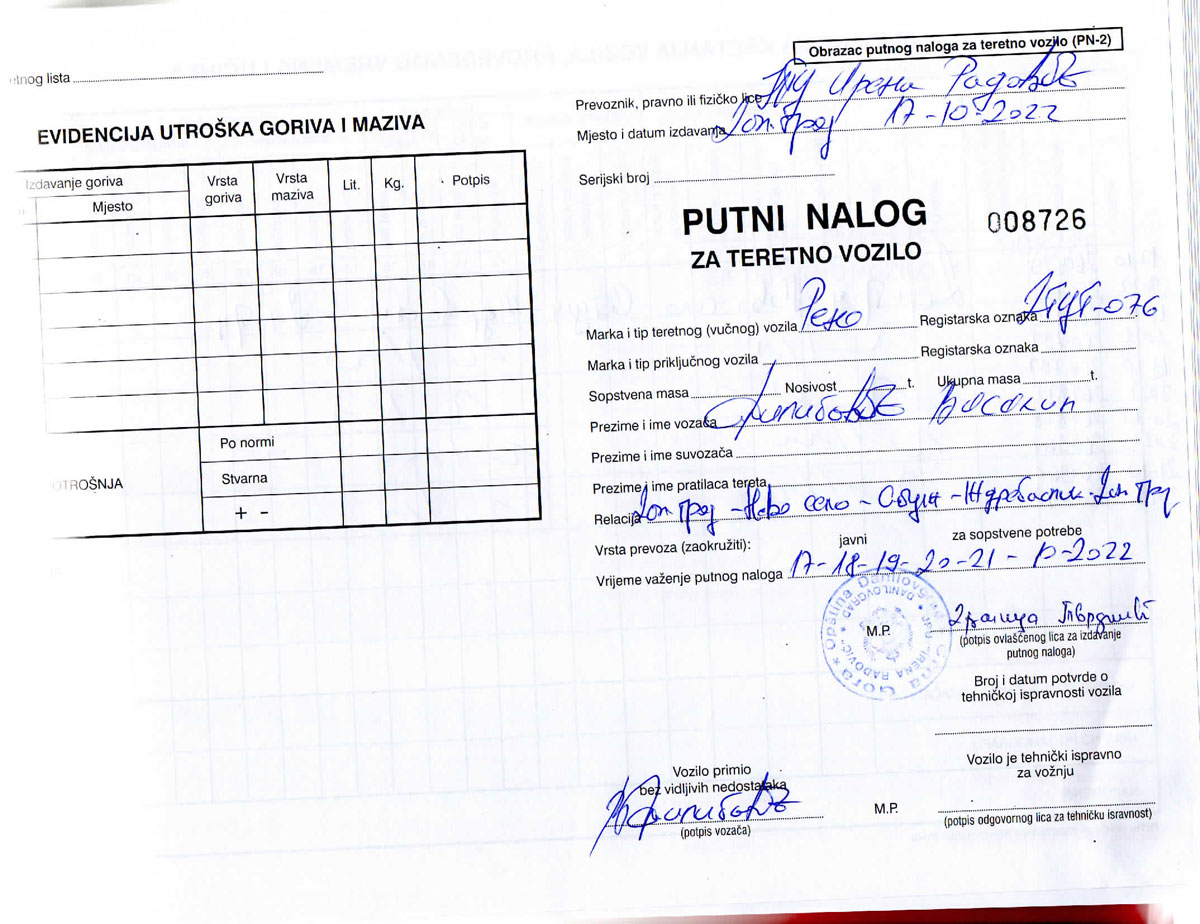 etnog lista
EVIDENCIJA UTROŠKA GORIVA I MAZIVA
Izdavanje goriva
Mjesto
Vrsta goriva
Vrsta maziva
Lit.
Kg.
Potpis
OTROŠNJA
Po normi
Stvarna
+ -
Obrazac putnog naloga za teretno vozilo (PN-2)
Prevoznik, pravno ili fizičko lice Ирена Радовић
Mjesto i datum izdavanja 17-10-2022
Serijski broj
PUTNI NALOG 008726
ZA TERETNO VOZILO
Marka i tip teretnog (vučnog) vozila Рено Registarska oznaka -076
Marka i tip priključnog vozila Registarska oznaka
Sopstvena masa Nosivost t. Ukupna masa t.
Prezime i ime vozača Филиповић
Prezime i ime suvozača
Prezime i ime pratilaca tereta
Relacija - Ново село - - Ждребаоник -
Vrsta prevoza (zaokružiti): javni za sopstvene potrebe
Vrijeme važenje putnog naloga 17-18-19-20-21 - -2022
Opština Danilovgrad * Crna Gora *
JPU "IRENA RADOVIĆ" * DANILOVGRAD
M.P.
(potpis ovlašćenog lica za izdavanje
putnog naloga)
Broj i datum potvrde o
tehničkoj ispravnosti vozila
Vozilo primio
bez vidljivih nedostataka
Филиповић
(potpis vozača)
M.P.
Vozilo je tehnički ispravno
za vožnju
(potpis odgovornog lica za tehničku isravnost)